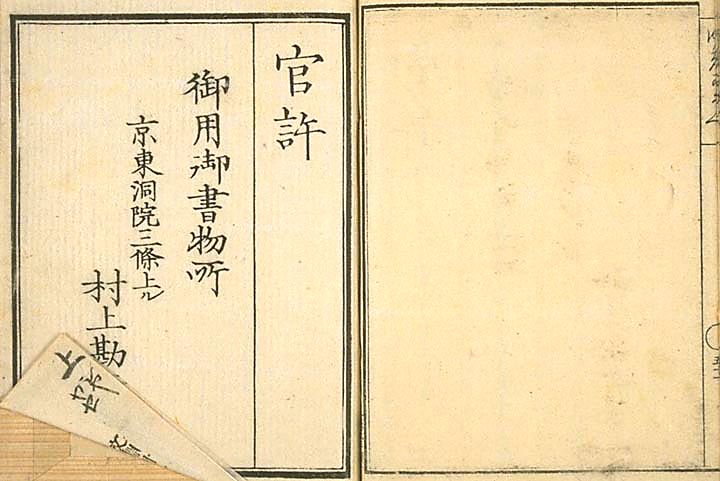 官許
御用御書物所
京東洞院三條上ル
村上勘